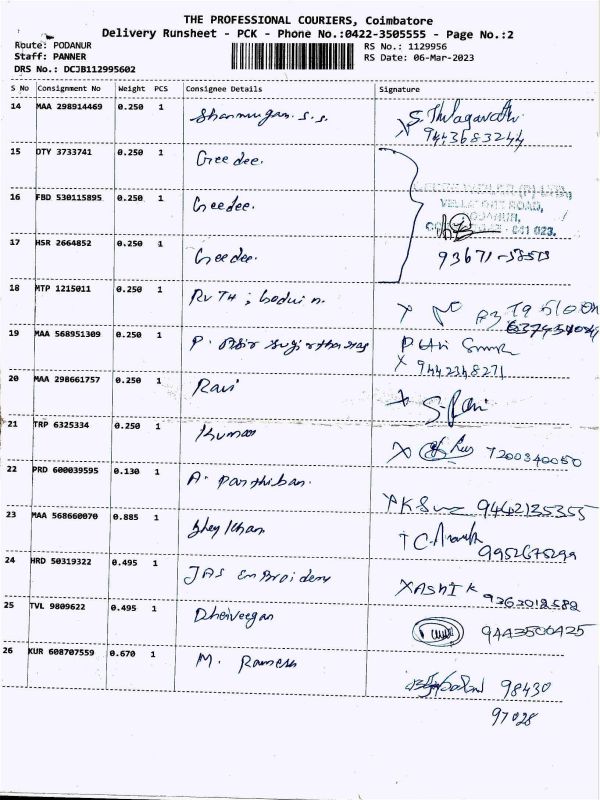 THE PROFESSIONAL COURIERS, Coimbatore
Delivery Runsheet - PCK - Phone No.:0422-3505555 - Page No.:2
Route: PODANUR RS No.: 1129956
Staff: PANNER RS Date: 06-Mar-2023
DRS No.: DCJB112995602
S No Consignment No Weight PCS Consignee Details Signature
14 MAA 298914469 0.250 1 Shanmugan. S.S. S. Thilagavathi
9443683244
15 DTY 3733741 0.250 1 Geedee.
16 FBD 530115895 0.250 1 Geedee.
VELLALORE ROAD,
PODANUR,
641 023.
17 HSR 2664852 0.250 1 Geedee.
93671-58513
18 MTP 1215011 0.250 1 RUTH ; Godwin.
19 MAA 568951309 0.250 1 P.
9442348271
20 MAA 298661757 0.250 1 Ravi S. Ravi
21 TRP 6325334 0.250 1 Kumar
7200340050
22 PRD 600039595 0.130 1 A. Parthiban.
9442135355
23 MAA 568660070 0.885 1
9952675299
24 HRD 50319322 0.495 1 JAS Embroidery
X ASHIK 9363018582
25 TVL 9809622 0.495 1 Dheiveegan
9443506425
26 KUR 608707559 0.670 1 M. Ramesh
98430
97028